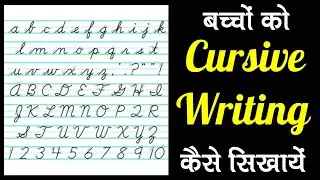 a b c d e f g h i j k
l m n o p q r s t
u v w x y z , . ? " " !
A B C D E F G H I
J K L M N O P Q R
S T U V W X Y Z
1 2 3 4 5 6 7 8 9 10
बच्चों को
Cursive
Writing
कैसे सिखायें